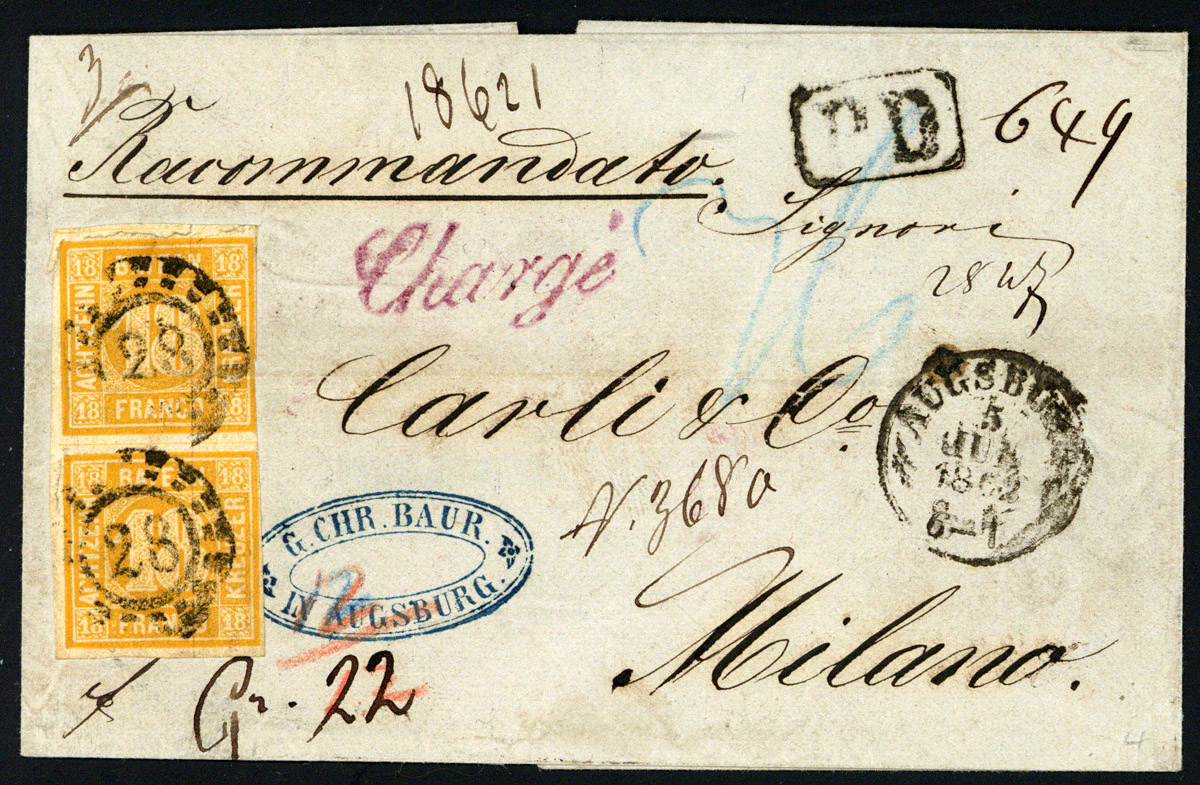 18621
Racommandato.
P D
649
Signori
Chargé
Carli & Co
N. 3680
Milano.
AUGSBURG
5
JUL
186
6-7
18 BAYERN 18
ACHTZEHN
18
KREUZER
28
18 FRANCO 18
18 BAYERN 18
ACHTZEHN
18
KREUZER
28
18 FRANCO 18
G. CHR. BAUR.
IN AUGSBURG.
12
Gr. 22
4